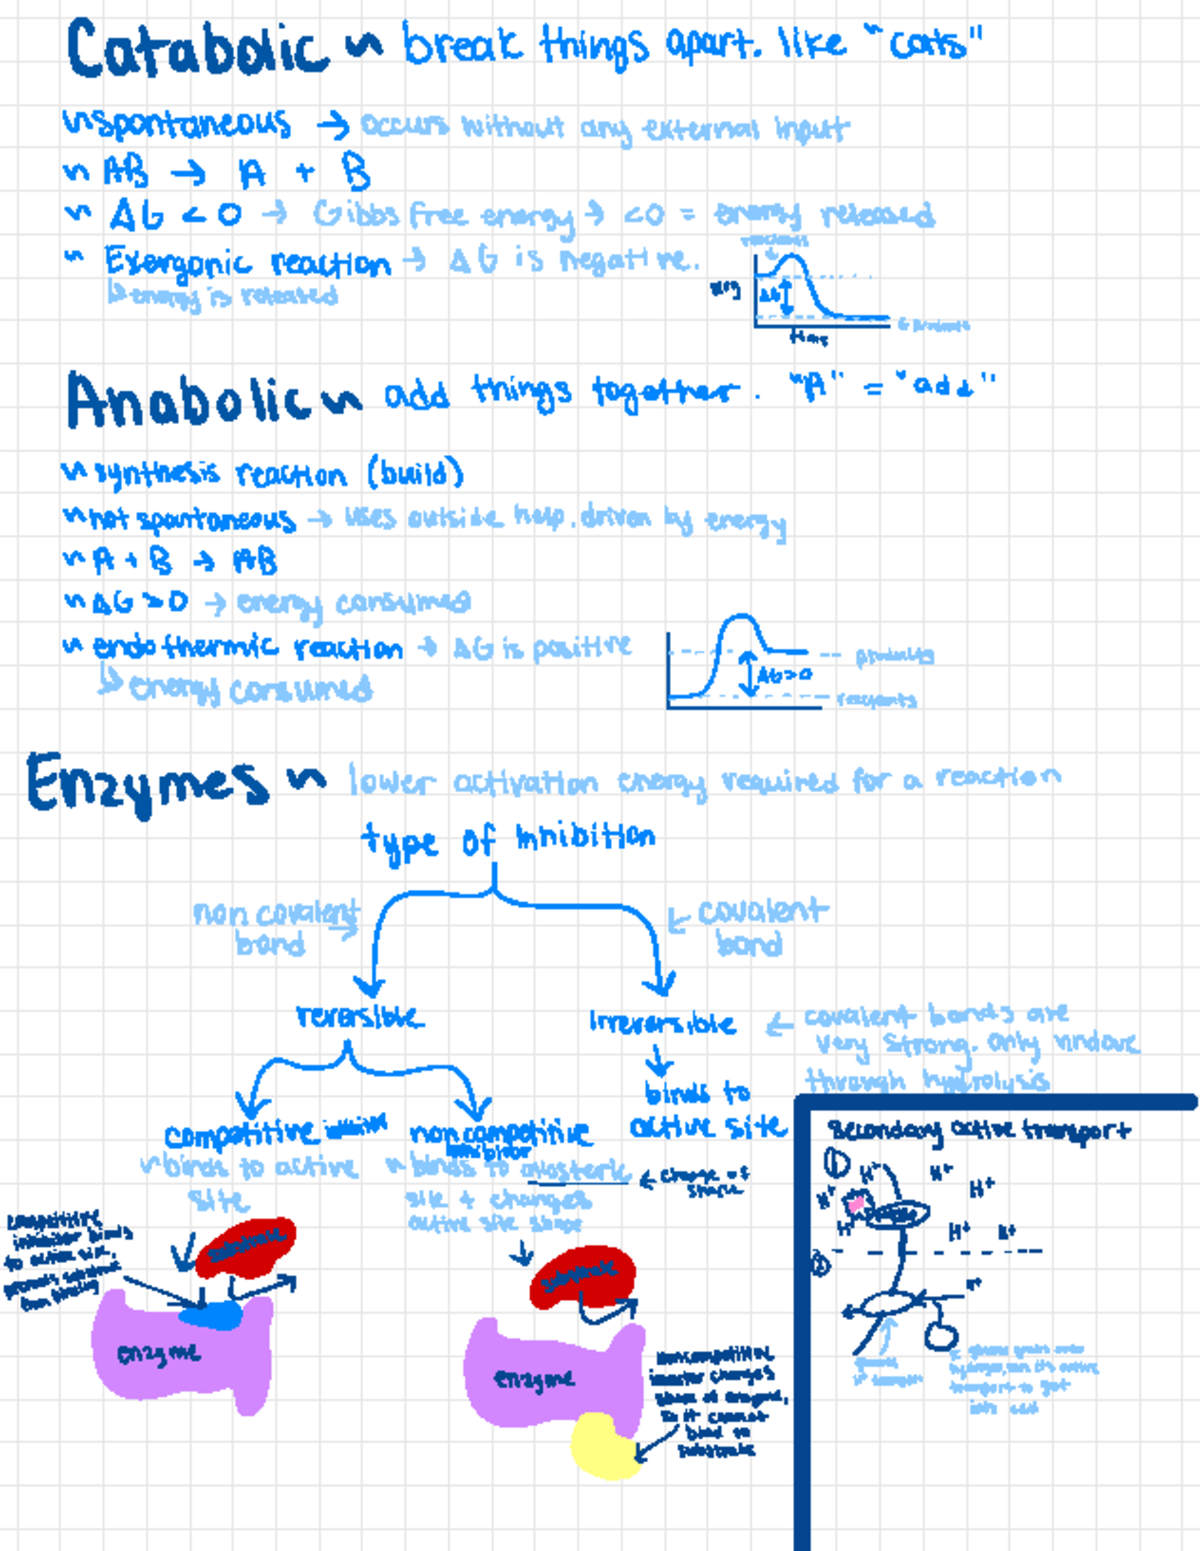 Catabolic ~ break things apart. like "cats"
~ spontaneous → occurs without any external input
~ AB → A + B
~ ΔG < 0 → Gibbs free energy → <0 = energy released
~ Exergonic reaction → ΔG is negative.
↳ energy is released
reactants
ΔG
products
time
Anabolic ~ add things together. "A" = "add"
~ synthesis reaction (build)
~ not spontaneous → uses outside help. driven by energy
~ A + B → AB
~ ΔG > 0 → energy consumed
~ endothermic reaction → ΔG is positive
↳ energy consumed
products
ΔG>0
reactants
Enzymes ~ lower activation energy required for a reaction
type of inhibition
non covalent
bond →
← covalent
bond
reversible
irreversible
← covalent bonds are
very strong. only undone
through hydrolysis
binds to
active site
competitive
~ binds to active
site
noncompetitive
inhibitor
~ binds to allosteric
site + changes
active site shape
← change of
shape
competitive
inhibitor binds
to active site,
prevents substrate
from binding
substrate
enzyme
substrate
enzyme
noncompetitive
changes
shape of enzyme,
so it cannot
bind to
substrate
Secondary active transport
①
H+
H+
H+
H+
H+
H+
H+
②
H+